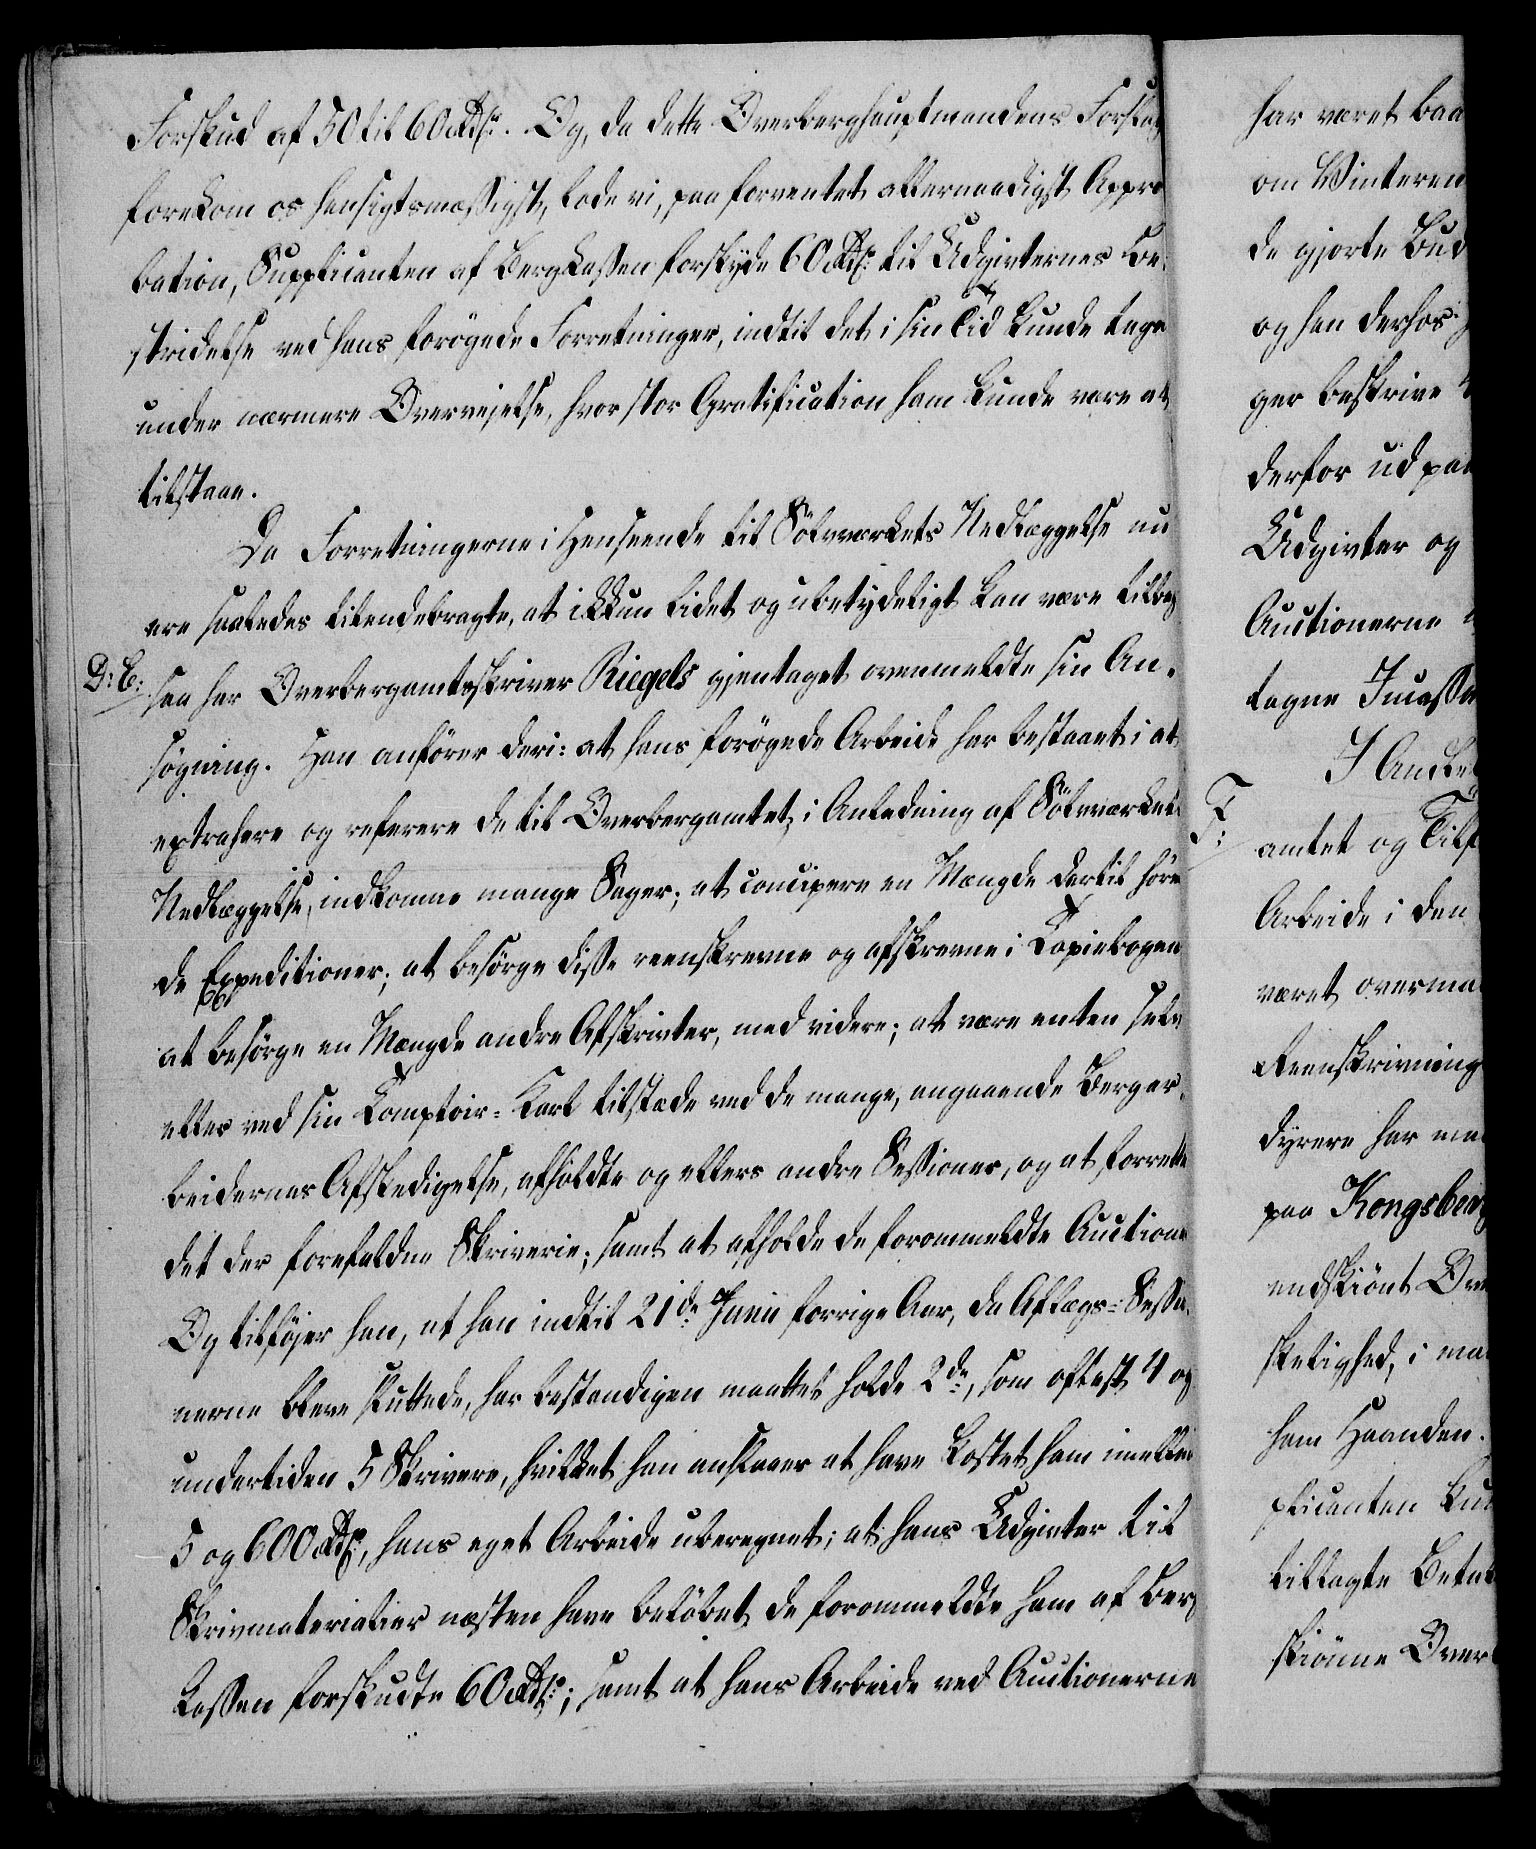 Forskud af 50 til 60 Rdlr. Og, da dette Overberghauptmandens Forslag
forekom os hensigtsmæssigst, lode vi, paa forventet allernaadigst Appro
bation, Supplicanten af Bergkassen forskyde 60 Rdlr. til Udgivternes Be-
stridelse ved hans forøgede Forretninger, indtil det i sin Tid kunde tages
under nærmere Overvejelse, hvor stor Gratification ham kunde være at
tilstaae.
Da Forretningerne i Henseende til Sølvværkets Nedlæggelse nu
ere saaledes tilendebragte, at ikkun lidet og ubetydeligt kan være tilbage
D: E:
saa har Overbergamtsskriver Riegels gjentaget ovenmeldte sin An-
søgning. Han anfører deri: at hans forøgede Arbeide har bestaaet i at
extrahere og referere de til Overbergamtet, i Anledning af Sølvværkets
Nedlæggelse, indkomne mange Sager; at concipere en Mængde dertil høren
de Expeditioner; at besørge disse reenskrevne og afskrevne i Copiebogen
at besørge en Mængde andre Afskrivter, med videre; at være enten selv
eller ved sin Comptoir-Karl tilstæde ved de mange, angaaende Bergar-
beidernes Afskedigelse, afholdte og ellers andre Sessioner, og at forrette
det der forefaldne Skriverie; samt at afholde de forommeldte Auctioner
Og tilføjer han, at han indtil 21de Junii forrige Aar, da Aftægs-Sessio-
nerne bleve sluttede, har bestandigen maattet holde 2de, som oftest 4 og
undertiden 5 Skrivere, hvilket han anslaaer at have kostet ham imellem
5 og 600 Rdlr., hans eget Arbeide uberegnet; at hans Udgivter til
Skrivmaterialier næsten have beløbet de forommeldte ham af Berg
kassen forskudte 60 Rdlr.; samt at hans Arbeide ved Auctionerne
har været baa
om Vinteren
de gjorte Bud
og han derhos
ger beskrive
derfor udpaa
Udgivter og
Auctionerne
tagne Incasse
I Anle
F:
amtet og Tilf
Arbeide i den
været overma
Reenskrivning
dyrere har ma
paa Kongsberg
endskiønt Ove
skelighed, i ma
ham Haanden.
plicanten kun
tillagte Betal
skiønne Over